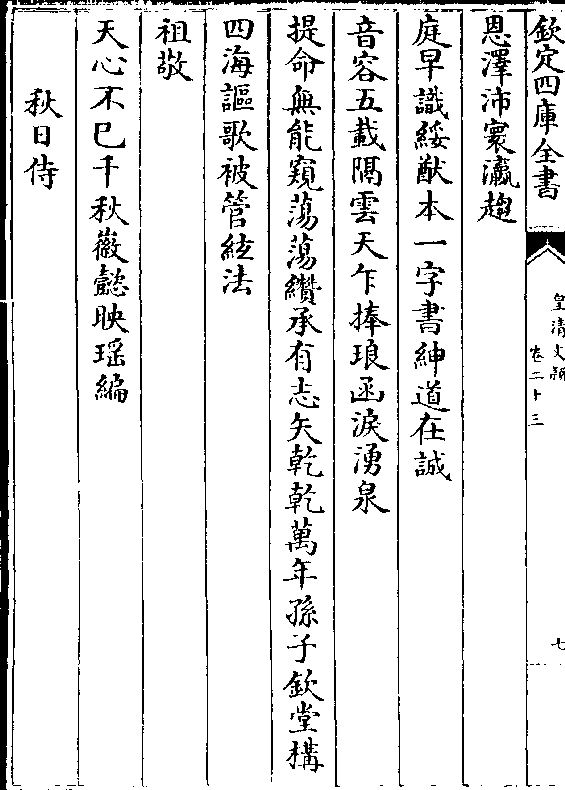 欽定四庫全書
皇清文穎
卷二十三
七
恩澤沛寰瀛趨
庭早識綏猷本一字書紳道在誠
音容五載隔雲天乍捧琅函淚湧泉
提命無能窺蕩蕩纘承有志矢乾乾萬年孫子欽堂構
四海謳歌被管絃法
祖敬
天心不已千秋徽懿映瑶編
秋日侍